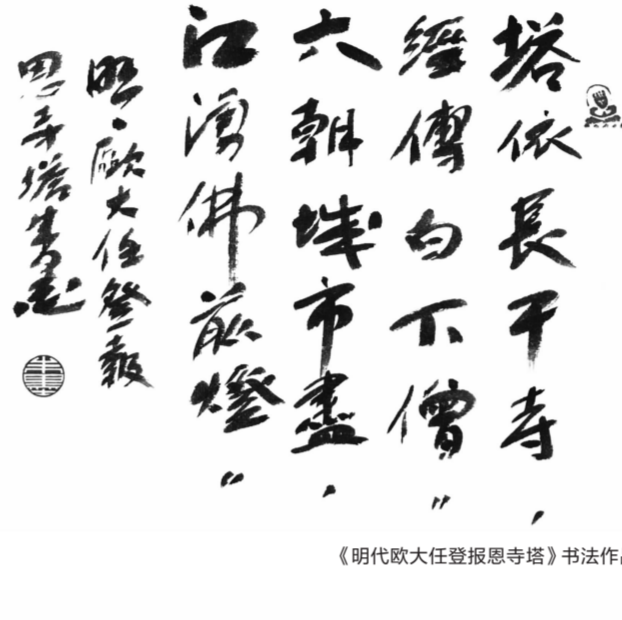 塔依長干寺，
經傳白下僧〃
六朝城市盡。
江湧佛前燈〃
明·歐大任登報
恩寺塔
《明代欧大任登报恩寺塔》书法作